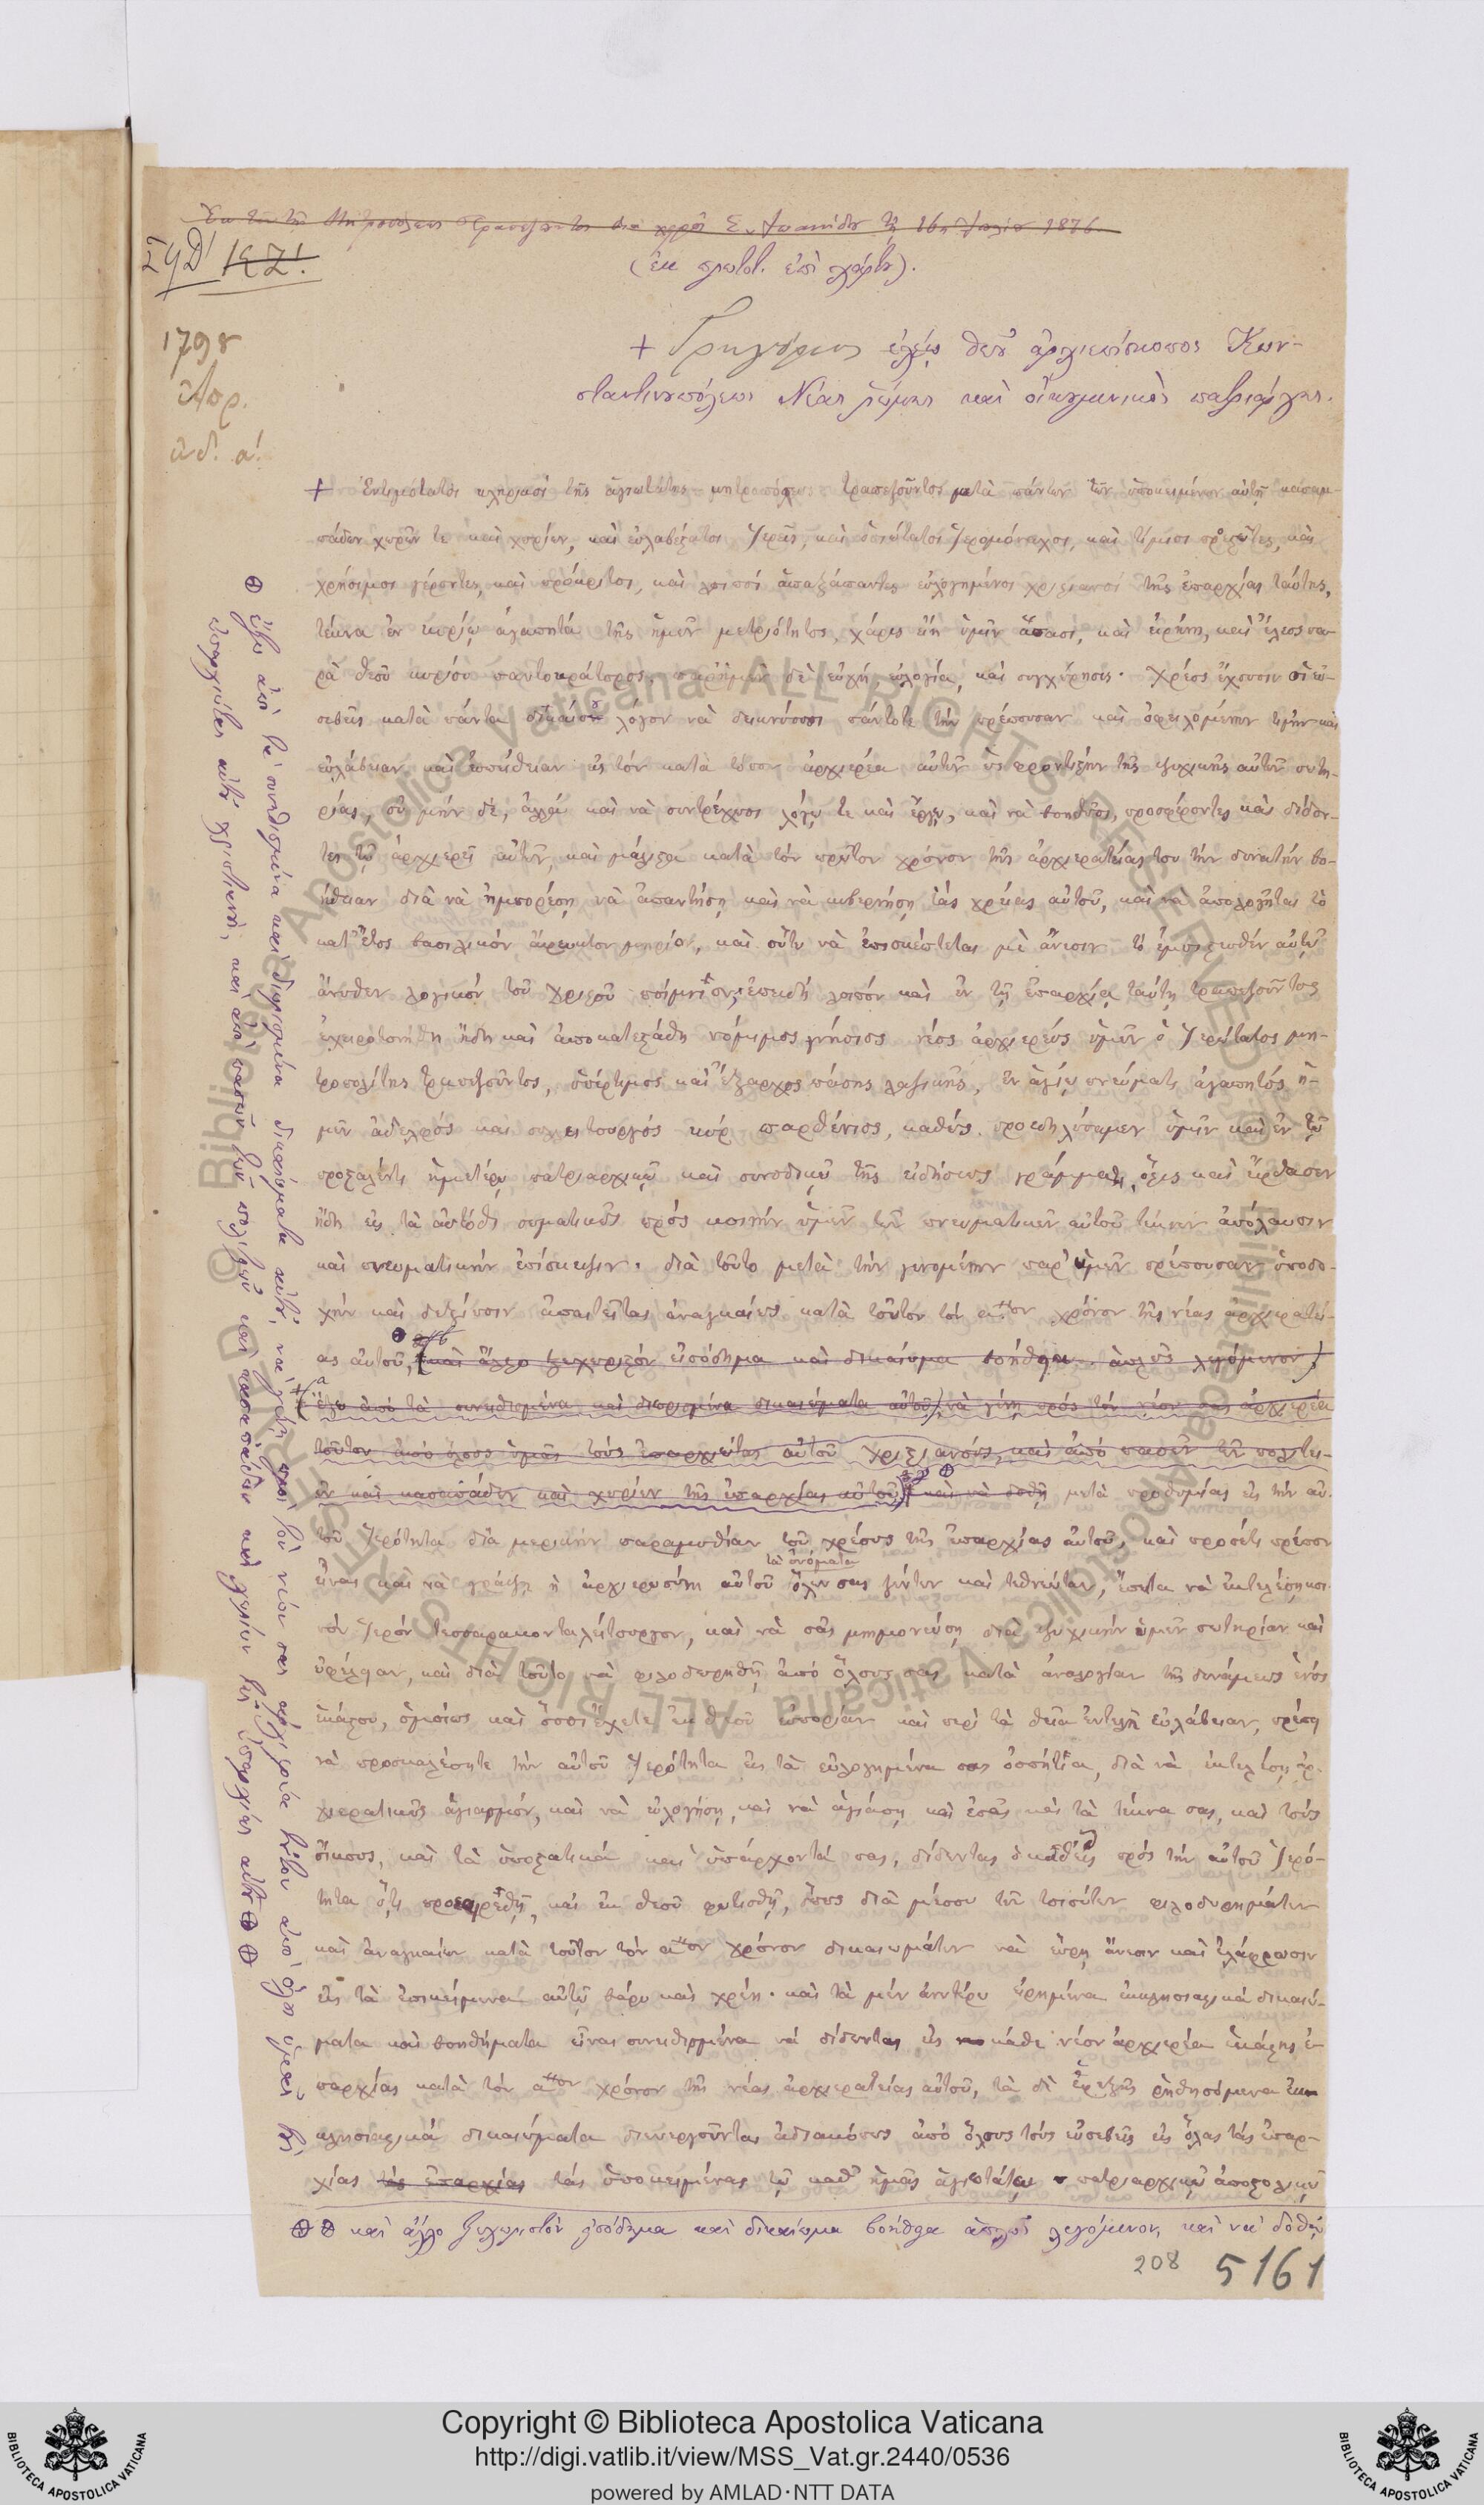 Ἐκ τῶν τῆς Μητροπόλεως Τραπεζοῦντος διὰ χειρὸς Σ. Ἰωαννίδου τῇ 16ῃ 1876
(ἐκ πρωτοτ. ἐπὶ χάρτου).
1798
Ἀπρ.
ἰνδ. α΄.
+ Γρηγόριος ἐλέῳ θεοῦ ἀρχιεπίσκοπος Κων-
σταντινουπόλεως Νέας Ῥώμης καὶ οἰκουμενικὸς πατριάρχης.
+ Ἐντιμότατοι κληρικοὶ τῆς ἁγιωτάτης μητροπόλεως τραπεζοῦντος μετὰ πάντων τῶν ὑποκειμένων αὐτῇ κασαμ-
πάδων χωρῶν τε καὶ χωρίων, καὶ εὐλαβέστατοι ἱερεῖς, καὶ ὁσιώτατοι ἱερομόναχοι, καὶ τίμιοι προεστῶτες, καὶ
χρήσιμοι γέροντες, καὶ πρόκριτοι, καὶ λοιποὶ ἁπαξάπαντες εὐλογημένοι χριστιανοὶ τῆς ἐπαρχίας ταύτης,
τέκνα ἐν κυρίῳ ἀγαπητὰ τῆς ἡμῶν μετριότητος, χάρις εἴη ὑμῖν ἅπασι, καὶ εἰρήνη, καὶ ἔλεος πα-
ρὰ θεοῦ κυρίου παντοκράτορος, παρ' ἡμῶν δὲ εὐχή, εὐλογία, καὶ συγχώρησις. Χρέος ἔχουσιν οἱ εὐ-
σεβεῖς κατὰ πάντα δικαίου λόγον νὰ δεικνύωσι πάντοτε τὴν πρέπουσαν καὶ ὀφειλομένην τιμὴν καὶ
εὐλάβειαν καὶ εὐπείθειαν εἰς τὸν κατὰ τόπον ἀρχιερέα αὐτῶν ὡς φροντιστὴν τῆς ψυχικῆς αὐτῶν σωτη-
ρίας, οὐ μὴν δέ, ἀλλὰ καὶ νὰ συντρέχωσι λόγῳ τε καὶ ἔργῳ, καὶ νὰ βοηθῶσι, προσφέροντες καὶ διδόν-
τες τῷ ἀρχιερεῖ αὐτῶν, καὶ μάλιστα κατὰ τὸν πρῶτον χρόνον τῆς ἀρχιερατείας του τὴν δυνατὴν βο-
ήθειαν διὰ νὰ ἠμπορέσῃ νὰ ἀπαντήσῃ καὶ νὰ κυβερνήσῃ τὰς χρείας αὐτοῦ, καὶ νὰ ἀπολογῆται τὸ
κατ' ἔτος βασιλικὸν ἄφευκτον μηρίον, καὶ οὕτω νὰ ἐπισκέπτεται μὲ ἄνεσιν τὸ ἐμπιστευθὲν αὐτῷ
ἄνωθεν λογικὸν τοῦ χριστοῦ ποίμνιον, ἐπειδὴ λοιπὸν καὶ ἐν τῇ ἐπαρχίᾳ ταύτῃ τραπεζοῦντος
ἐχειροτονήθη ἤδη καὶ ἀποκατεστάθη νόμιμος γνήσιος νέος ἀρχιερεὺς ὑμῶν ὁ ἱερώτατος μη-
τροπολίτης τραπεζοῦντος, ὑπέρτιμος καὶ ἔξαρχος πάσης λαζικῆς, ἐν ἁγίῳ πνεύματι ἀγαπητὸς ἡ-
μῶν ἀδελφὸς καὶ συλλειτουργὸς κὺρ παρθένιος, καθὼς προεδηλώσαμεν ὑμῖν καὶ ἐν τῷ
προσταλέντι ἡμετέρῳ πατριαρχικῷ καὶ συνοδικῷ τῆς εἰδήσεως γράμματι, ὅστις καὶ ἔφθασεν
ἤδη εἰς τὰ αὐτόθι σωματικῶς πρὸς κοινὴν ὑμῶν τῶν πνευματικῶν αὐτοῦ τέκνων ἀπόλαυσιν
καὶ πνευματικὴν ἐπίσκεψιν. διὰ τοῦτο μετὰ τὴν γινομένην παρ' ὑμῶν πρέπουσαν ὑποδο-
χὴν καὶ δεξίωσιν ἀπαιτεῖται ἀναγκαίως κατὰ τοῦτον τὸν αον χρόνον τῆς νέας ἀρχιερατεί-
ας αὐτοῦ, (καὶ ἄλλο ξεχωριστὸν εἰσόδημα καὶ δικαίωμα βοήθεια ἁπλῶς λεγόμενον)
ἔξω ἀπὸ τὰ συνειθισμένα καὶ διωρισμένα δικαιώματα αὐτοῦ, νὰ γένῃ πρὸς τὸν νέον σας ἀρχιερέα
τοῦτον ἀπὸ ὅλους ὑμᾶς τοὺς ἐπαρχιώτας αὐτοῦ χριστιανούς, καὶ ἀπὸ πασῶν τῶν πολιτει-
ῶν καὶ κασαπάδων καὶ χωρίων τῆς ἐπαρχίας αὐτοῦ καὶ νὰ δοθῇ μετὰ προθυμίας εἰς τὴν αὐ-
τοῦ ἱερότητα διὰ μερικὴν παραμυθίαν τοῦ χρέους τῆς ἐπαρχίας αὐτοῦ, καὶ προσέτι πρέπον
εἶναι καὶ νὰ γράψῃ ἡ ἀρχιερωσύνη αὐτοῦ τὰ ὀνόματα ὅλων σας ζώντων καὶ τεθνεώτων, ἔπειτα νὰ ἐκτελέσῃ κοι-
νὸν ἱερὸν τεσσαρακονταλείτουργον, καὶ νὰ σᾶς μνημονεύσῃ διὰ ψυχικὴν ὑμῶν σωτηρίαν καὶ
ὠφέλειαν, καὶ διὰ τοῦτο νὰ φιλοδωρηθῇ ἀπὸ ὅλους σας κατὰ ἀναλογίαν τῆς δυνάμεως ἑνὸς
ἑκάστου, ὁμοίως καὶ ὅσοι ἔχετε ἐκ θεοῦ εὐπορίαν καὶ περὶ τὰ θεῖα ἐντελῆ εὐλάβειαν, πρέπει
νὰ προσκαλέσητε τὴν αὐτοῦ ἱερότητα εἰς τὰ εὐλογημένα σας ὀσπήτια, διὰ νὰ ἐκτελέσῃ ἀρ-
χιερατικῶς ἁγιασμόν, καὶ νὰ εὐλογήσῃ, καὶ νὰ ἁγιάσῃ καὶ ἐσᾶς καὶ τὰ τέκνα σας, καὶ τοὺς
οἴκους, καὶ τὰ ὑποστατικὰ καὶ ὑπάρχοντά σας, δίδοντας ὁ καθεὶς πρὸς τὴν αὐτοῦ ἱερό-
τητα ὅ,τι προαιρεθῇ, καὶ ἐκ θεοῦ φωτισθῇ, ὅπως διὰ μέσου τῶν τοιούτων φιλοδωρημάτων
καὶ ἀναγκαίων κατὰ τοῦτον τὸν αον χρόνον δικαιωμάτων νὰ εὕρῃ ἄνεσιν καὶ ἐλάφρωσιν
εἰς τὰ ἐπικείμενα αὐτῷ βάρη καὶ χρέη. καὶ τὰ μὲν ἀνωτέρω εἰρημένα ἐκκλησιαστικὰ δικαιώ-
ματα καὶ βοηθήματα εἶναι συνειθισμένα νὰ δίδωνται εἰς κάθε νέον ἀρχιερέα ἑκάστης ἐ-
παρχίας κατὰ τὸν αον χρόνον τῆς νέας ἀρχιερατείας αὐτοῦ, τὰ δὲ ἐφεξῆς ῥηθησόμενα ἐκ-
κλησιαστικὰ δικαιώματα διενεργοῦνται ἀδιακόπως ἀπὸ ὅλους τοὺς εὐσεβεῖς εἰς ὅλας τὰς ἐπαρ-
χίας τὰς ἐπαρχίας τὰς ὑποκειμένας τῷ καθ' ἡμᾶς ἁγιωτάτῳ πατριαρχικῷ ἀποστολικῷ
⊕ ⊕ καὶ ἄλλο ξεχωριστὸν εἰσόδημα καὶ δικαίωμα βοήθεια ἁπλῶς λεγόμενον, καὶ νὰ δοθῇ
⊕ ἔξω ἀπὸ τὰ συνειθισμένα καὶ διωρισμένα δικαιώματα αὐτοῦ, νὰ γένῃ πρὸς τὸν νέον σας ἀρχιερέα τοῦτον ἀπὸ ὅλους ὑμᾶς τοὺς
ἐπαρχιώτας αὐτοῦ χριστιανούς, καὶ ἀπὸ πασῶν τῶν πολιτειῶν καὶ κασαπάδων καὶ χωρίων τῆς ἐπαρχίας αὐτοῦ ⊕ ⊕
208 5161
© Biblioteca Apostolica Vaticana ALL RIGHTS RESERVED
Copyright © Biblioteca Apostolica Vaticana
http://digi.vatlib.it/view/MSS_Vat.gr.2440/0536
powered by AMLAD·NTT DATA
BIBLIOTECA APOSTOLICA VATICANA
BIBLIOTECA APOSTOLICA VATICANA